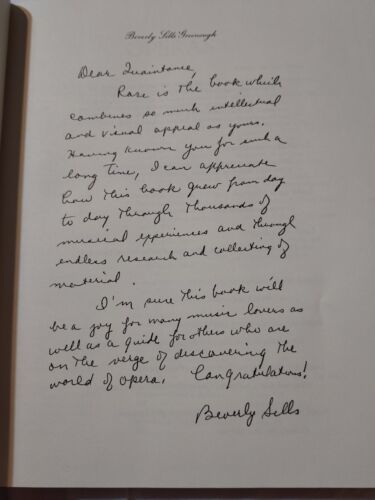 Beverly Sills Greenough
Dear Quaintance,
Rare is the book which
combines so much intellectual
and visual appeal as yours.
Having known you for such a
long time, I can appreciate
how this book grew from day
to day through thousands of
musical experiences and through
endless research and collecting of
material.
I'm sure this book will
be a joy for many music lovers as
well as a guide for others who are
on the verge of discovering the
world of opera. Congratulations!
Beverly Sills